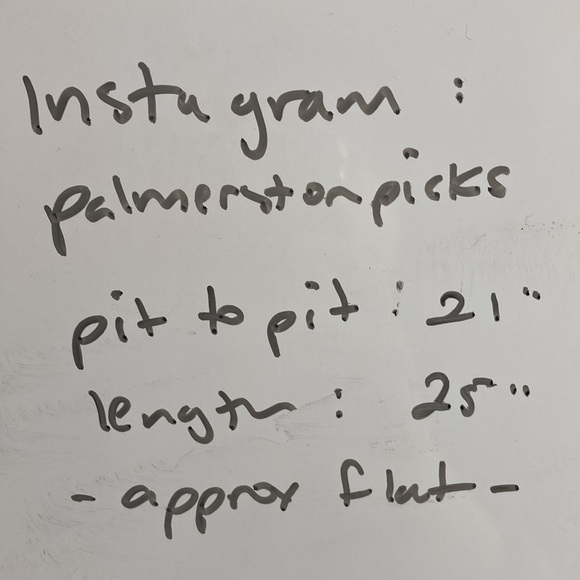 Instagram :
palmerstonpicks
pit to pit : 21"
length : 25"
- approx flat -